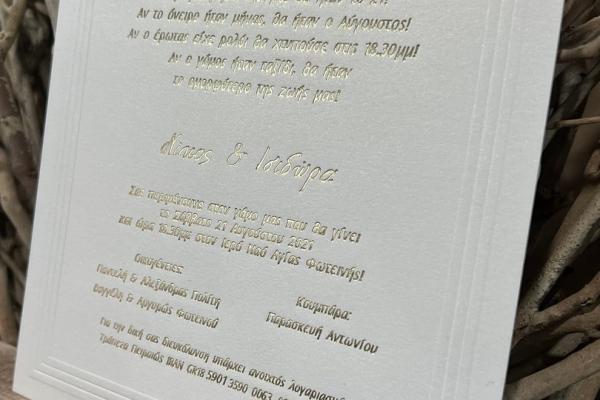 Αν το όνειρο ήταν μήνας, θα ήταν ο Αύγουστος!
Αν ο έρωτας είχε ρολόι θα χτυπούσε στις 18.30μμ!
Αν ο γάμος ήταν ταξίδι, θα ήταν
το ομορφότερο της ζωής μας!
Νίκος & Ισιδώρα
Σας περιμένουμε στον γάμο μας που θα γίνει
το Σάββατο 21 Αυγούστου 2021
και ώρα 18.30μμ στον Ιερό Ναό Αγίας Φωτεινής!
Οικογένειες:
Παντελή & Αλεξάνδρας Πολίτη
Βαγγέλη & Αργυρώς Φωτεινού
Κουμπάρα:
Παρασκευή Αντωνίου
Για την δική σας διευκόλυνση υπάρχει ανοιχτός λογαριασμός
Τράπεζα Πειραιώς IBAN GR18 5901 3590 0063